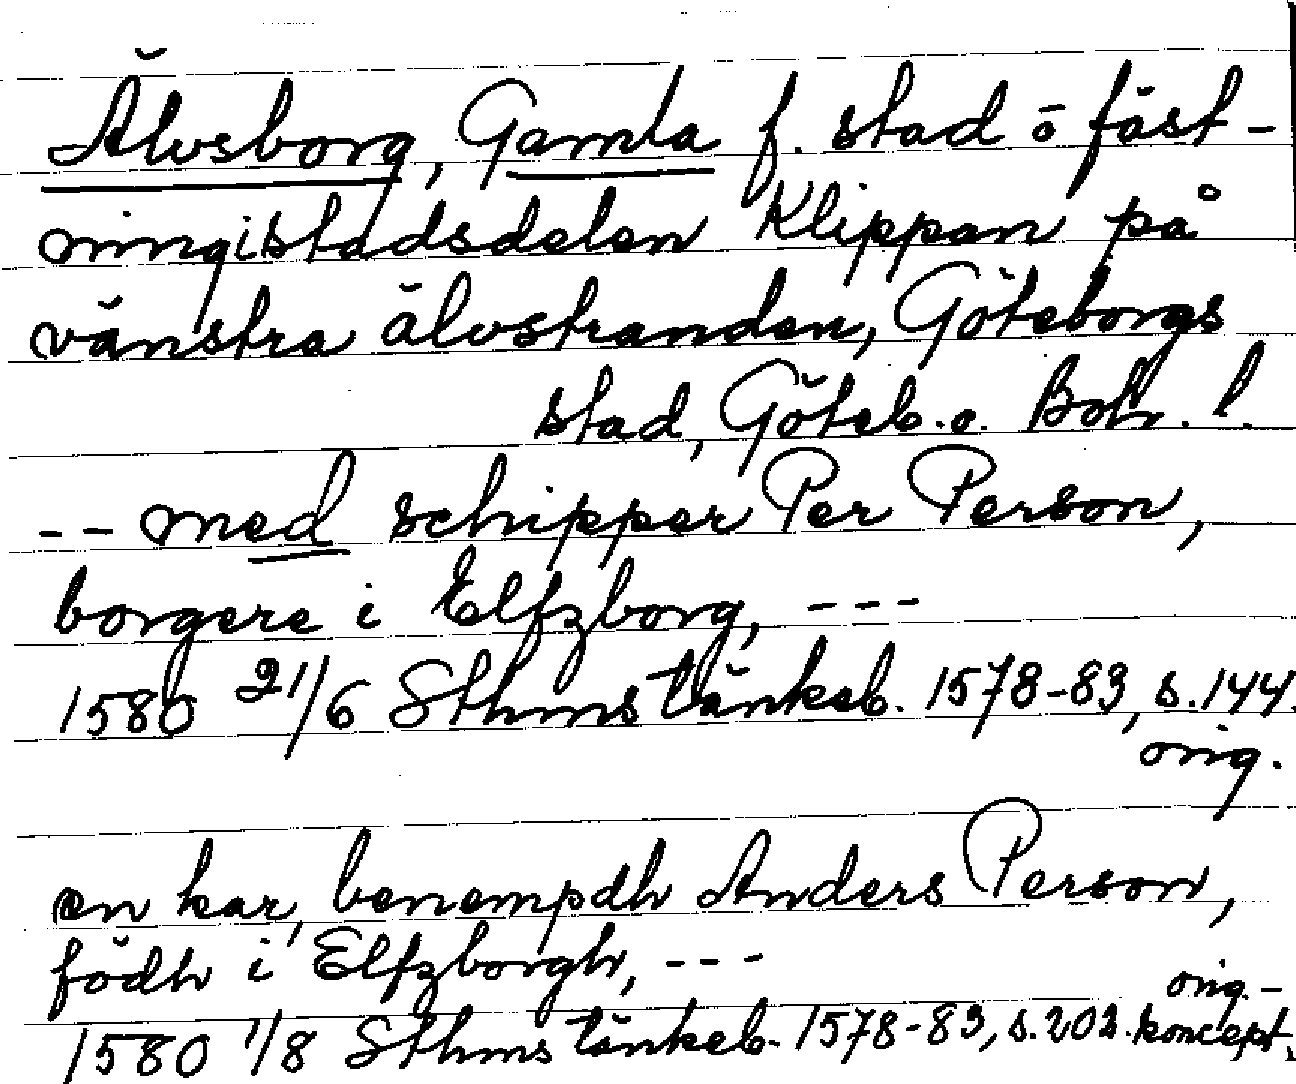 Älvsborg, Gamla f. stad o fäst-
ning i stadsdelen Klippan på
vänstra älvstranden, Göteborgs
stad, Göteb. o. Boh. l.
-- med schipper Per Person,
borgere i Elfzborg, ---
1580 21/6 Sthms tänkeb. 1578-83, s. 144.
orig.
en kar, benempdh Anders Person,
födh i Elfzborgh, ---
orig.-
1580 1/8 Sthms tänkeb. 1578-83, s. 202. koncept.